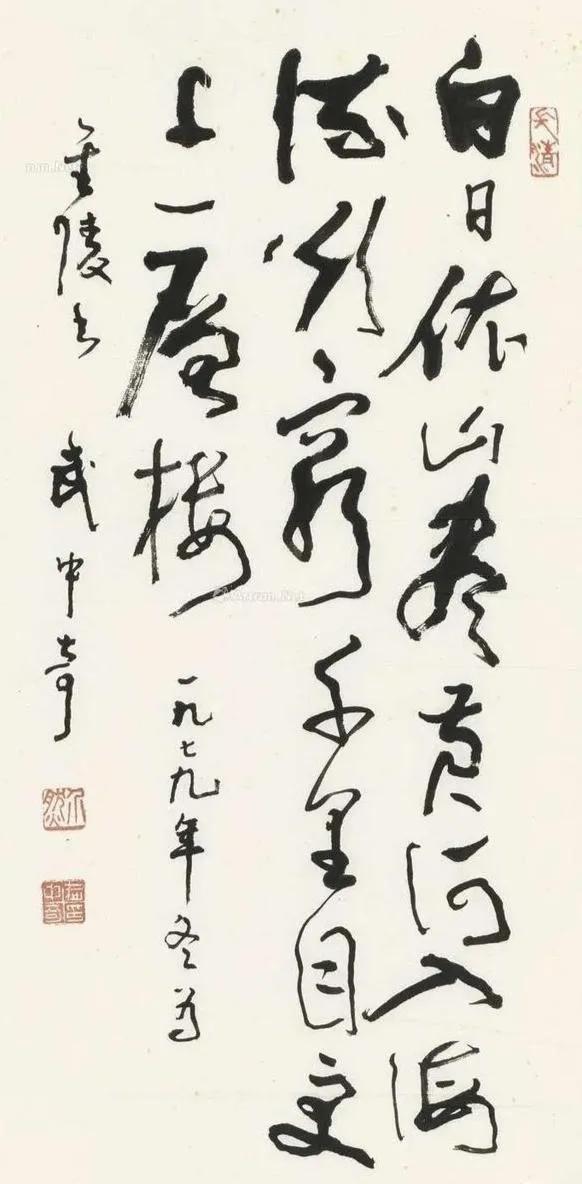 白日依山盡黄河入海
流欲窮千里目更
上一層樓 一九七九年冬
金陵 武中奇
Artron.Net